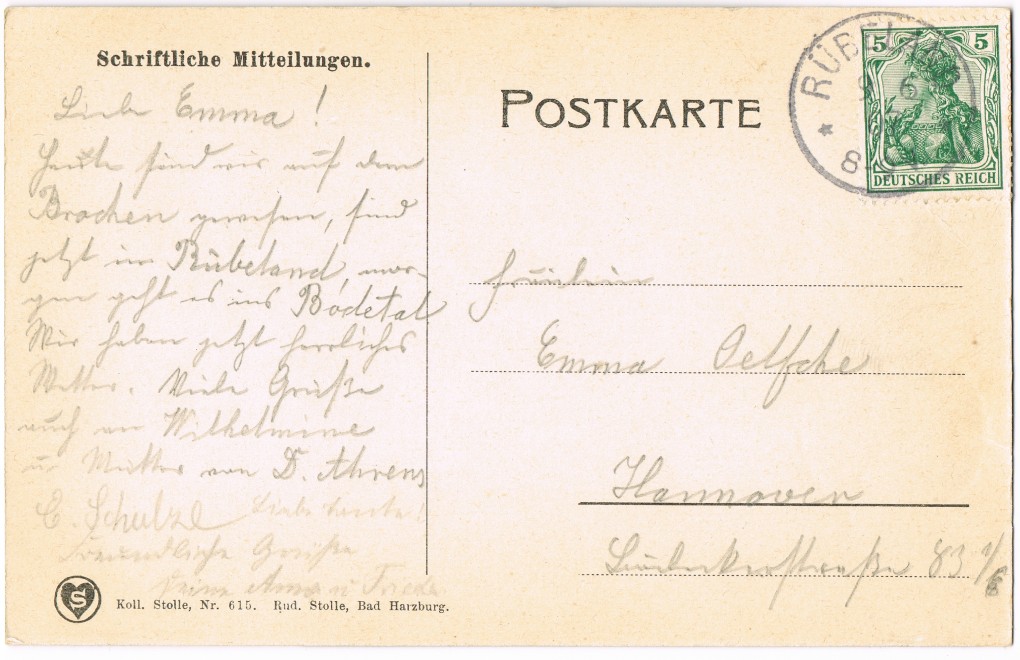 Schriftliche Mitteilungen.
Liebe Emma!
Heute sind wir auf dem
Brocken gewesen, sind
jetzt in Rübeland, mor-
gen geht es ins Bodetal
Wir haben jetzt herrliches
Wetter. Viele Grüße
auch an Wilhelmine
u. Mutter von D. Ahrens
E. Schulze
Freundliche Grüße
S
Koll. Stolle, Nr. 615. Rud. Stolle, Bad Harzburg.
POSTKARTE
RÜBELA
5 5
DEUTSCHES REICH
Fräulein
Emma
Hannover
83